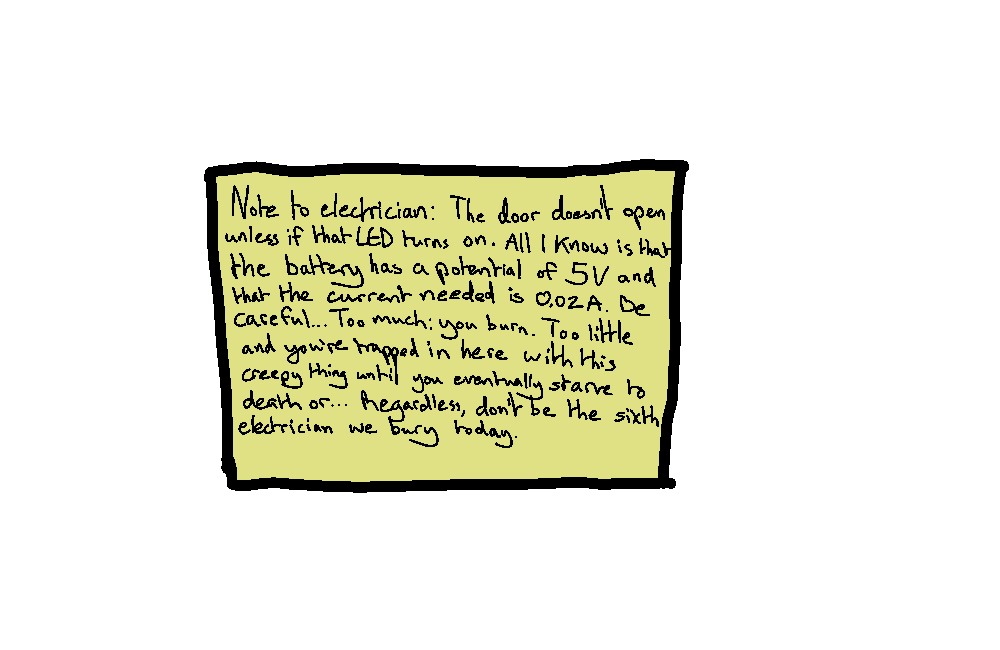 Note to electrician: The door doesn't open
unless if that LED turns on. All I know is that
the battery has a potential of 5V and
that the current needed is 0,02A. Be
careful... Too much; you burn. Too little
and you're trapped in here with this
creepy thing until you eventually starve to
death or... Regardless, don't be the sixth
electrician we bury today.